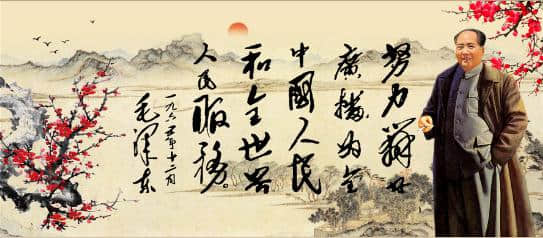 努力辦好
廣播为全
中國人民
和全世界
人民服務。
一九六五年十二月
毛泽东